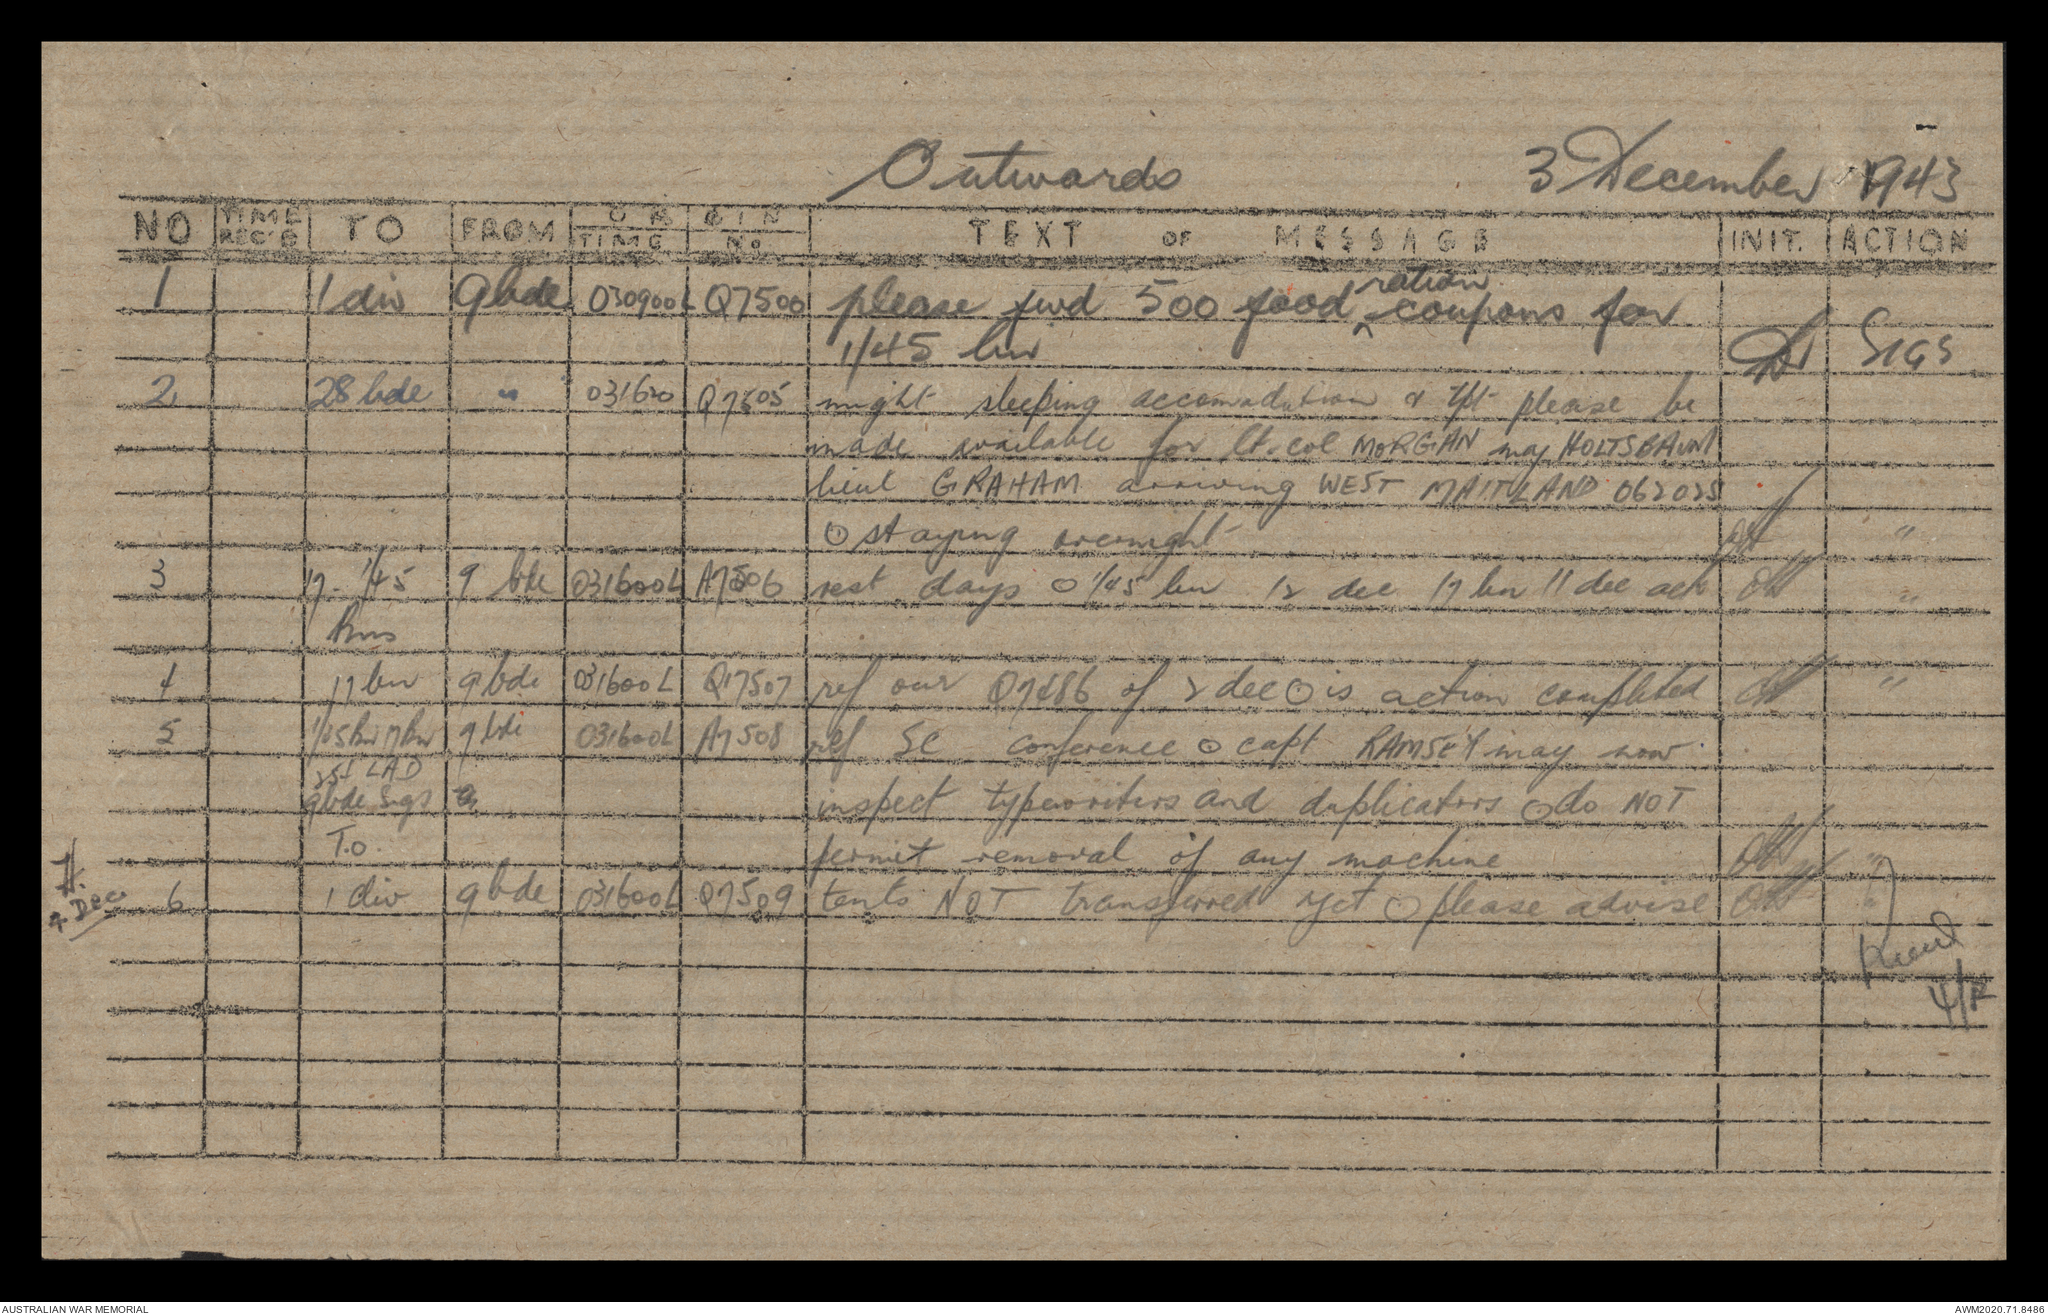 Outwards 3 December 1943
NO TIME REC'D TO FROM O R TIME GIN No. TEXT OF MESSAGE INIT. ACTION
1 1 div 9 bde 030900L Q7500 please fwd 500 food ration coupons for
1/45 bn SIGS
2 28 bde " 031600 Q7505 night sleeping accomodation & tpt please be
made available for lt.col MORGAN maj HOLTSBAUM
lieut GRAHAM arriving WEST MAITLAND 062025
⊙ staying overnight "
3 17 - 1/45 9 bde 031600L A7506 rest days ⊙ 1/45 bn 12 dec 17 bn 11 dec ack "
bns
4 17 bn 9 bde 031600L Q17507 ref our Q7486 of 2 dec ⊙ is action completed "
5 1/45 bn 17 bn 9 bde 031600L A7508 ref SC conference ⊙ capt RAMSEY may now
LAD
9 bde sigs inspect typewriters and duplicators ⊙ do NOT
T.O. permit removal of any machine "
6 1 div 9 bde 031600L Q7509 tents NOT transferred yet ⊙ please advise "
4 Dec
4/12
AUSTRALIAN WAR MEMORIAL AWM2020.71.8486